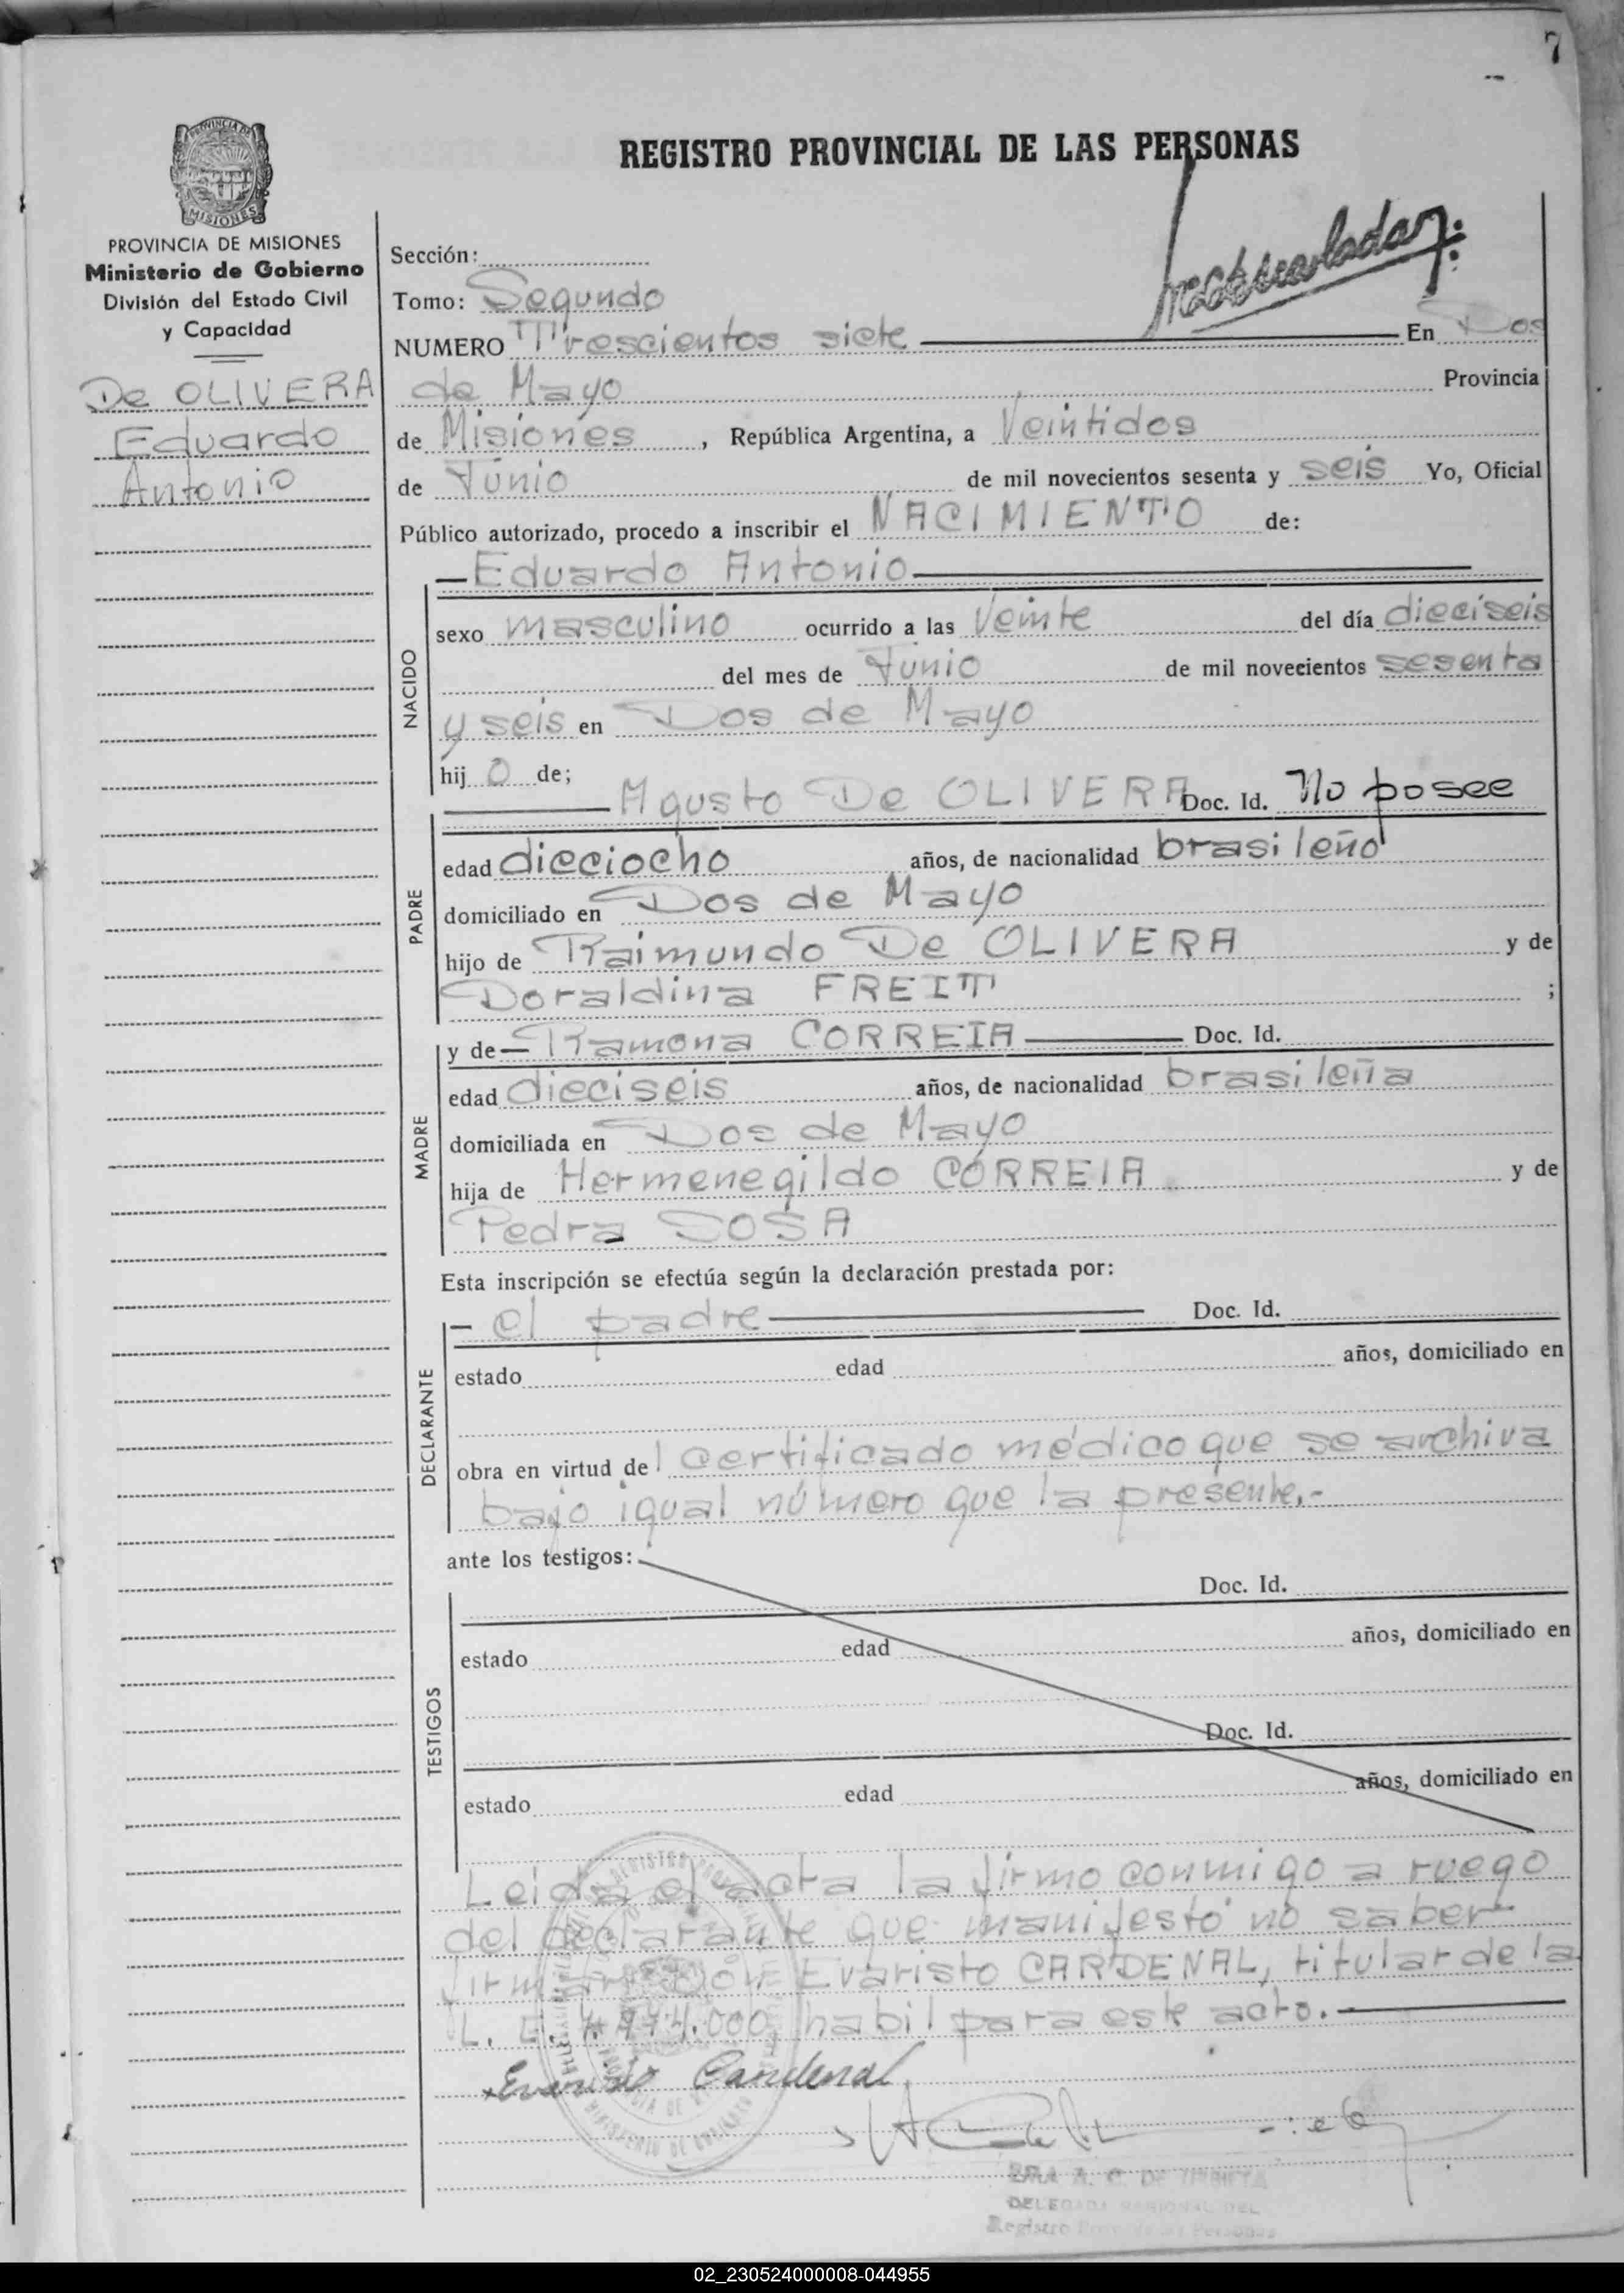 7
REGISTRO PROVINCIAL DE LAS PERSONAS
PROVINCIA DE
MISIONES
PROVINCIA DE MISIONES
Ministerio de Gobierno
División del Estado Civil
y Capacidad
De OLIVERA
Eduardo
Antonio
Sección:
Tomo: Segundo
NUMERO Trescientos siete En Dos
de Mayo Provincia
de Misiones, República Argentina, a Veintidos
de Junio de mil novecientos sesenta y seis Yo, Oficial
Público autorizado, procedo a inscribir el NACIMIENTO de:
NACIDO
Eduardo Antonio
sexo masculino ocurrido a las Veinte del día dieciseis
del mes de Junio de mil novecientos sesenta
y seis en Dos de Mayo
hijo de;
PADRE
Agusto De OLIVERA Doc. Id. No posee
edad dieciocho años, de nacionalidad brasileño
domiciliado en Dos de Mayo
hijo de Raimundo De OLIVERA y de
Doraldina FREIT ;
MADRE
y de Ramona CORREIA Doc. Id.
edad dieciseis años, de nacionalidad brasileña
domiciliada en Dos de Mayo
hija de Hermenegildo CORREIA y de
Pedra SOSA
Esta inscripción se efectúa según la declaración prestada por:
DECLARANTE
- el padre Doc. Id.
estado edad años, domiciliado en
obra en virtud del certificado médico que se archiva
bajo igual número que la presente.-
ante los testigos:
TESTIGOS
Doc. Id.
estado edad años, domiciliado en
Doc. Id.
estado edad años, domiciliado en
Leida el acta la firmo conmigo a ruego
del declarante que manifestó no saber
firmar don Evaristo CARDENAL, titular de la
L. E. habil para este acto.
Evaristo Cardenal
DELEGADA DEL
Registro
02_230524000008-044955